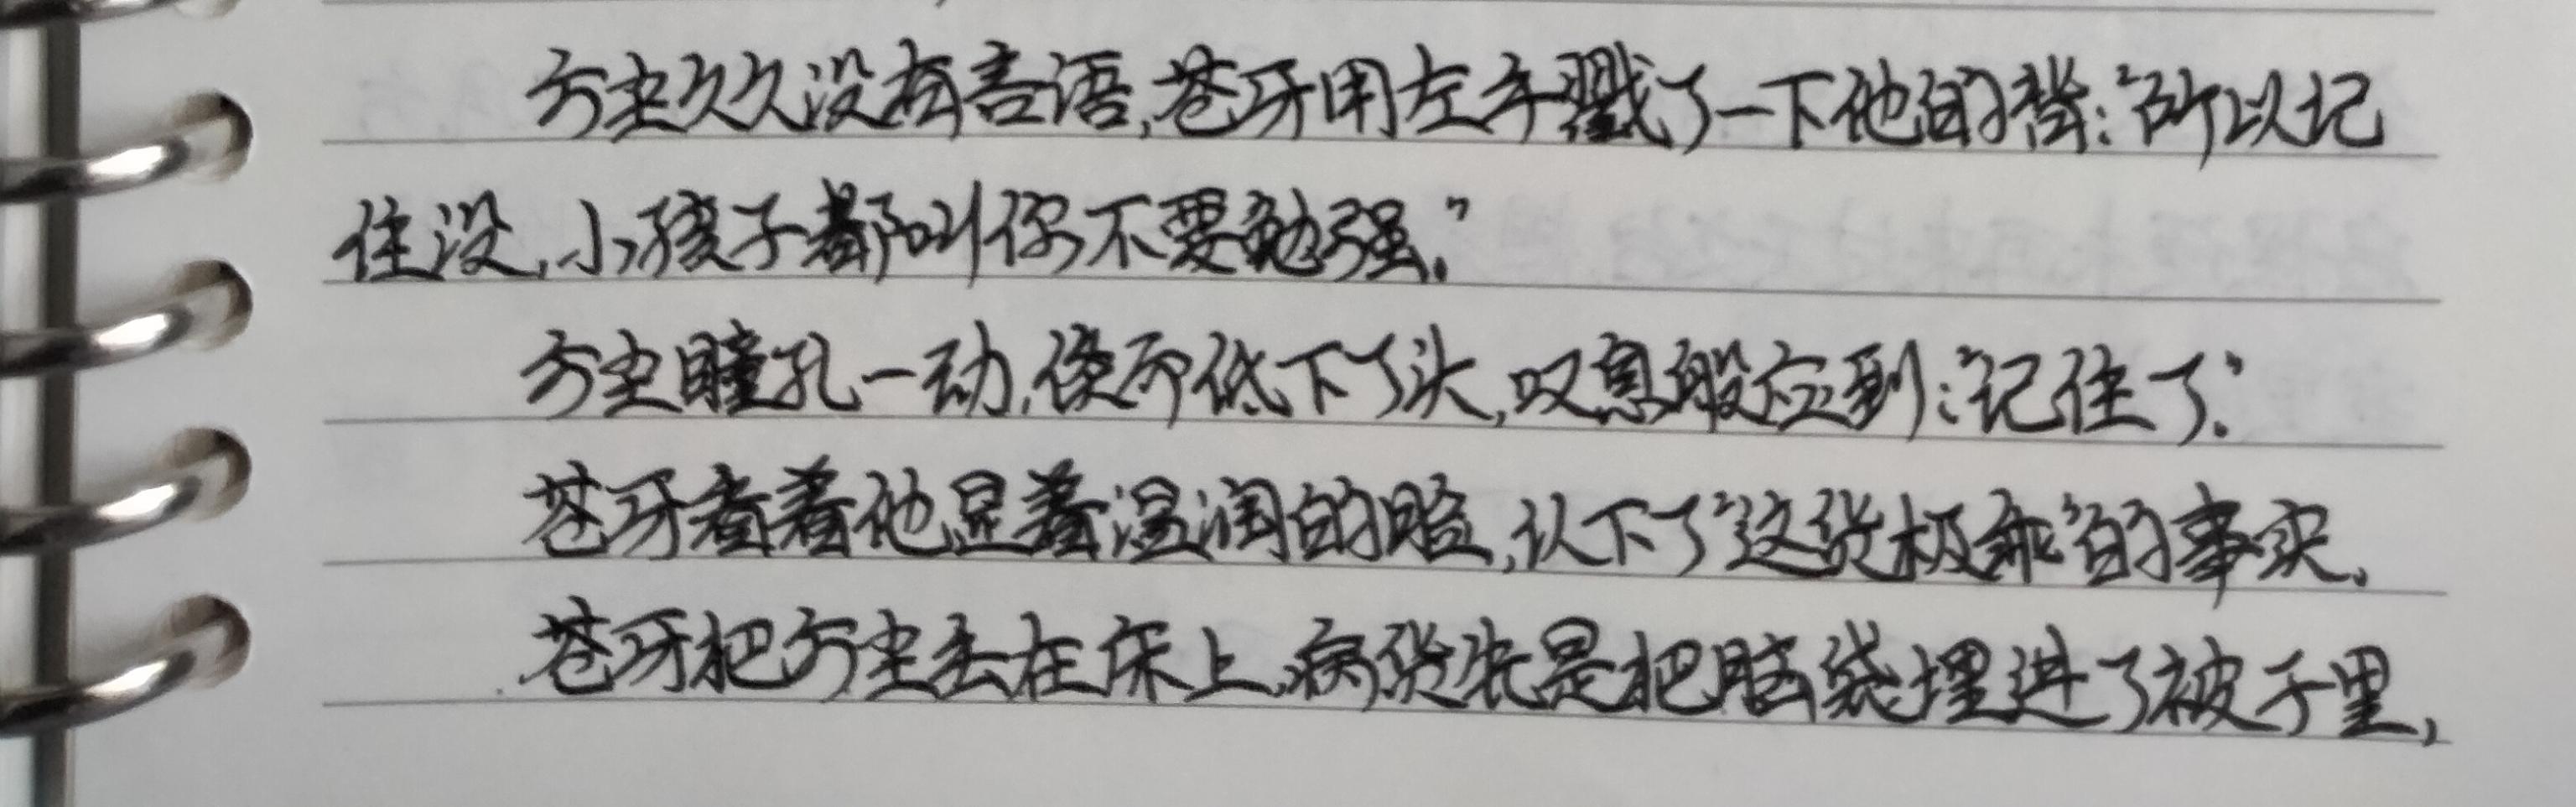 方尘久久没有言语,苍牙用左手戳了一下他的背:“所以记
住没,小孩子都叫你不要勉强.”
方尘瞳孔一动,倏而低下了头,叹息般应到:“记住了.”
苍牙看着他显着湿润的脸,认下了“这货极乖”的事实,
苍牙把方尘丢在床上,病货先是把脑袋埋进了被子里,